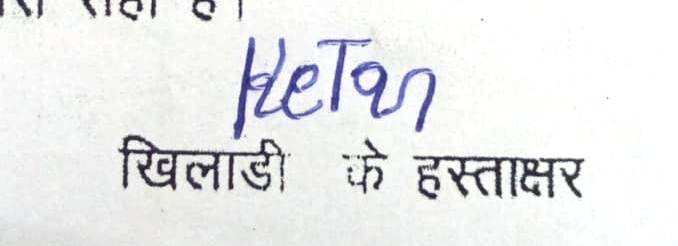 Ketan
खिलाडी के हस्ताक्षर